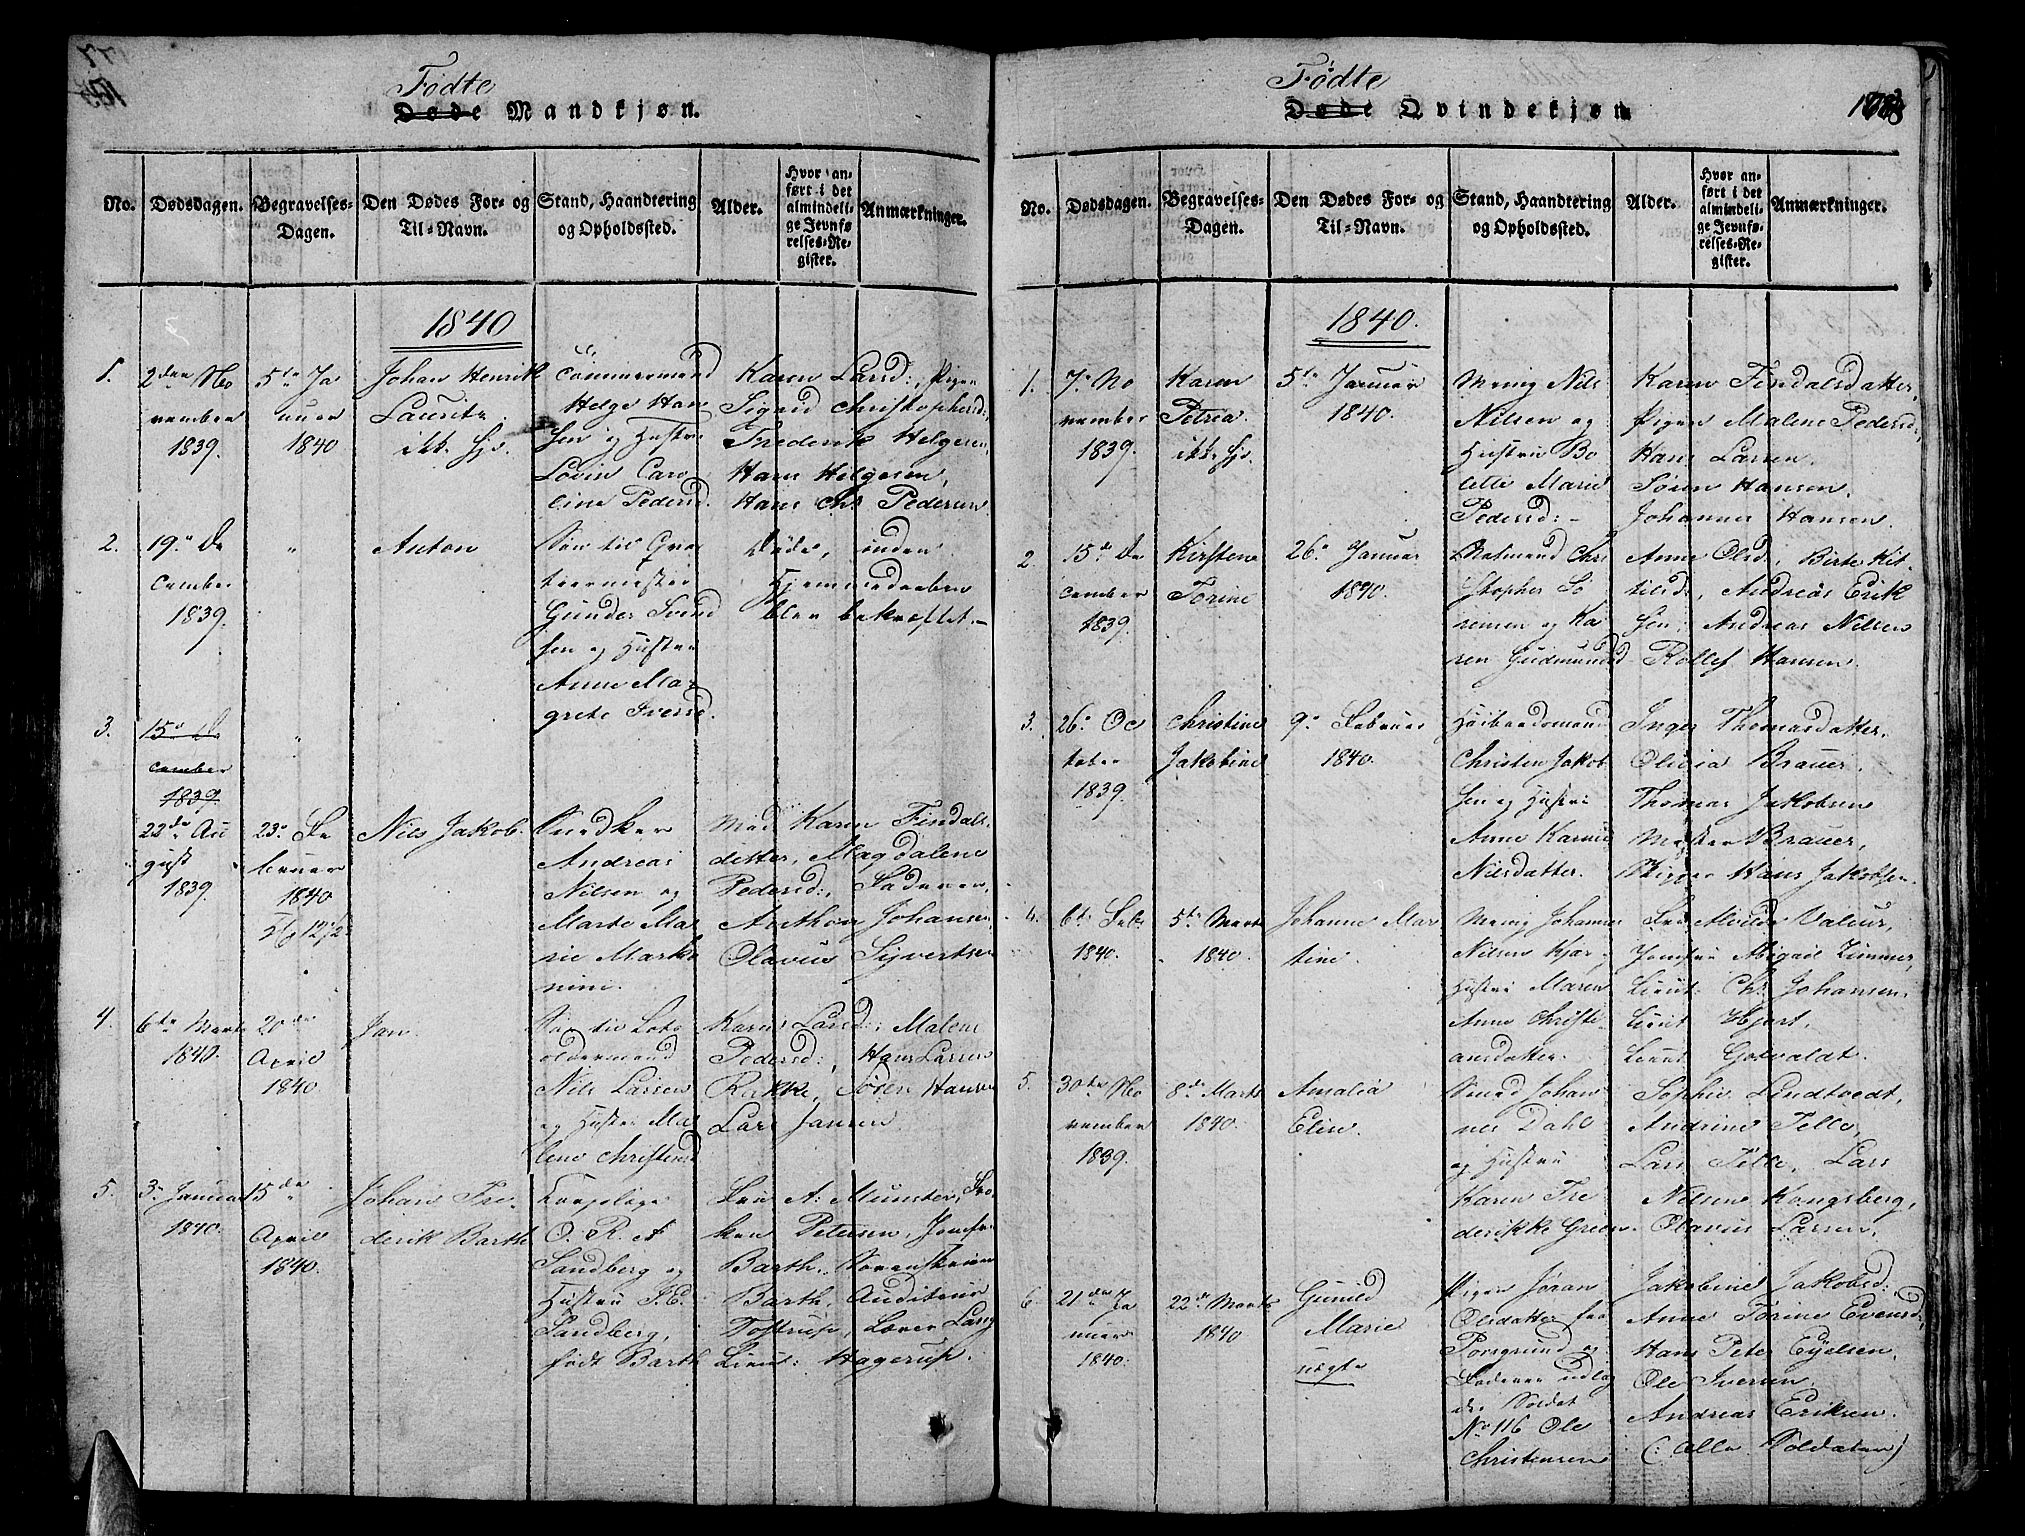 Fødte
Døde Mandkjøn.
No.
Dødsdagen.
Begravelses-
Dagen.
Den Dødes For- og
Til-Navn.
Stand, Haandtering
og Opholdssted.
Alder.
Hvor an-
ført i det
almindeli-
ge Jevnfø-
relses-Re-
gister.
Anmærkninger.
1840
1.
2den No
vember
1839.
5te Ja
nuar
1840
Johan Henrik
Lauritz.
ikke hjd.
Tömmermand
Helge Han
sen og Hustru
Lovise Caro
line Pedersd.
Karen Larsd:, Pigen
Sigrid Christophersd:
Frederik Helgesen,
Hans Helgesen,
Hans Chr. Pedersen
2.
19. De
cember
1839.
"
Anton
Søn til Qvar
teermester
Gunder Svend
sen og Hustru
Anne Mar
grete Iversd.
døde, inden
Hjemmedaaben
blev bekræftet.-
3.
15. De
cember
1839
"
22de Au
gust
1839.
23. Fe
bruar
1840
Nils Jakob.
Snedker
Andreas
Nilsen og
Marte Ma
rie Marku
nini.
Mad. Karen Findals-
datter, Magdalene
Pedersd:, Faderen,
Anthon Johansen
Olavus Sivertsen
4.
6te Marts
1840.
20de
April
1840
Jan.
Søn til Lods
oldermand
Nils Larsen
og Hustru Ma
lene Christensd
Karen Larsd:, Malene
Pedersd:, Hans Larsen
Rakke, Søren Hansen
Lars Jansen
5.
3. Januar
1840.
15de
April
1840.
Johan Fre
derik Barth
O. R. A
Sandberg og
Hustru I. E.
Sandberg,
født Barth
Fru A. Munster, Frø
ken Petersen, Jomfru
Barth, Sorenskriver
Barth, Auditeur
Tostrup, Læver Lang
Lieut: Hagerup.
Fødte
Døde Qvindekjøn
No.
Dødsdagen.
Begravelses-
Dagen.
Den Dødes For- og
Til-Navn.
Stand, Haandtering
og Opholdssted.
Alder.
Hvor an-
ført i det
almindeli-
ge Jevnfø-
relses-Re-
gister.
Anmærkninger.
1840.
1.
7. No
vember
1839.
Karen
Petria.
ikke hjd.
5te Januar
1840.
Menig Nils
Nilsen og
Hustru Bo
lette Marie
Pedersd:-
Karen Findalsdatter,
Pigen Malene Pedersd:,
Hans Larsen,
Søren Hansen,
Johannes Hansen.
2.
15de De
cember
1839.
Kirstene
Torine
26. Januar
1840.
Matmand Chri
stopher Sö
rensen og Ka
ren Gudmundsd
Anne Olsd:, Birte Kit-
tilsd:, Andreas Erik
sen, Andreas Nilsen
Rollef Hansen.
3.
26. Oc
tober
1839.
Christine
Jakobine
9. Februar
1840.
Christen Jakob
sen og Hustru
Anne Karine
Nilsdatter.
Inger Thomasdatter,
Olivia Brauer,
Thomas Jakobsen
Mester Brauer,
Skipper Hans Jakobsen.
4.
6te Feb:
1840.
5te Marts
1840.
Johanne Mar
tine.
Menig Johannes
Nilsen Kjær,
Hustru Maren
Anne Christi-
ansdatter.
Fru Alvilde Valeur,
Jomfru Abigael Zimmer,
Lieut: Chr. Johansen,
Lieut Hjort,
Lieut Gotvaldt.
5.
30te No
vember
1839.
8de Marts
1840.
Amalia
Elise.
Smed Johan
nes Dahl
og Hustru
Karen Fre
derikke Green.
Sophie Lindtvedt,
Andrine Telle,
Lars Telle, Lars
Nilsen Kongsberg,
Olavus Larsen.
6
21de Ja
nuar
1840.
22de Marts
1840
Gunild
Marie
uægte
Pigen Jøran
Olsdatter fra
Porsgrund og
Faderen udlag
de: Soldat
No 116 Ole
Christensen
Jakobine Jakobsd:
Anne Torine Evensd:,
Hans Peter Eyelsen,
Ole Iversen,
Andreas Eriksen.
(: Alle Soldater)